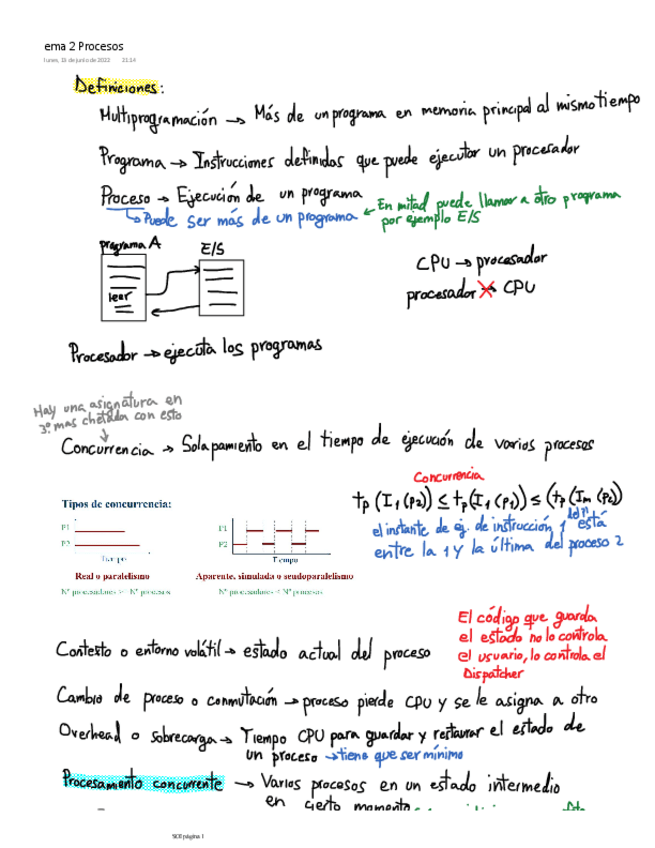 ema 2 Procesos
lunes, 13 de junio de 2022 21:14
Definiciones:
Multiprogramación → Más de un programa en memoria principal al mismo tiempo
Programa → Instrucciones definidas que puede ejecutar un procesador
Proceso → Ejecución de un programa
Puede ser más de un programa ← En mitad puede llamar a otro programa
por ejemplo E/S
programa A E/S
leer
CPU → procesador
procesador → CPU
Procesador → ejecuta los programas
Hay una asignatura en
3º mas chetada con esto
Concurrencia → Solapamiento en el tiempo de ejecución de varios procesos
Concurrencia
tp (I1 (p2)) ≤ tp (I1 (p1)) ≤ (tp (Im (p2))
el instante de ej. de instrucción 1 del p1 está
entre la 1 y la última del proceso 2
Tipos de concurrencia:
P1
P2
Tiempo
P1
P2
Tiempo
Real o paralelismo
Aparente, simulada o seudoparalelismo
Nº procesadores >= Nº procesos
Nº procesadores < Nº procesos
El código que guarda
el estado no lo controla
el usuario, lo controla el
Dispatcher
Contexto o entorno volátil → estado actual del proceso
Cambio de proceso o conmutación → proceso pierde CPU y se le asigna a otro
Overhead o sobrecarga → Tiempo CPU para guardar y restaurar el estado de
un proceso → tiene que ser mínimo
Procesamiento concurrente → Varios procesos en un estado intermedio
en cierto momento
SOI página 1